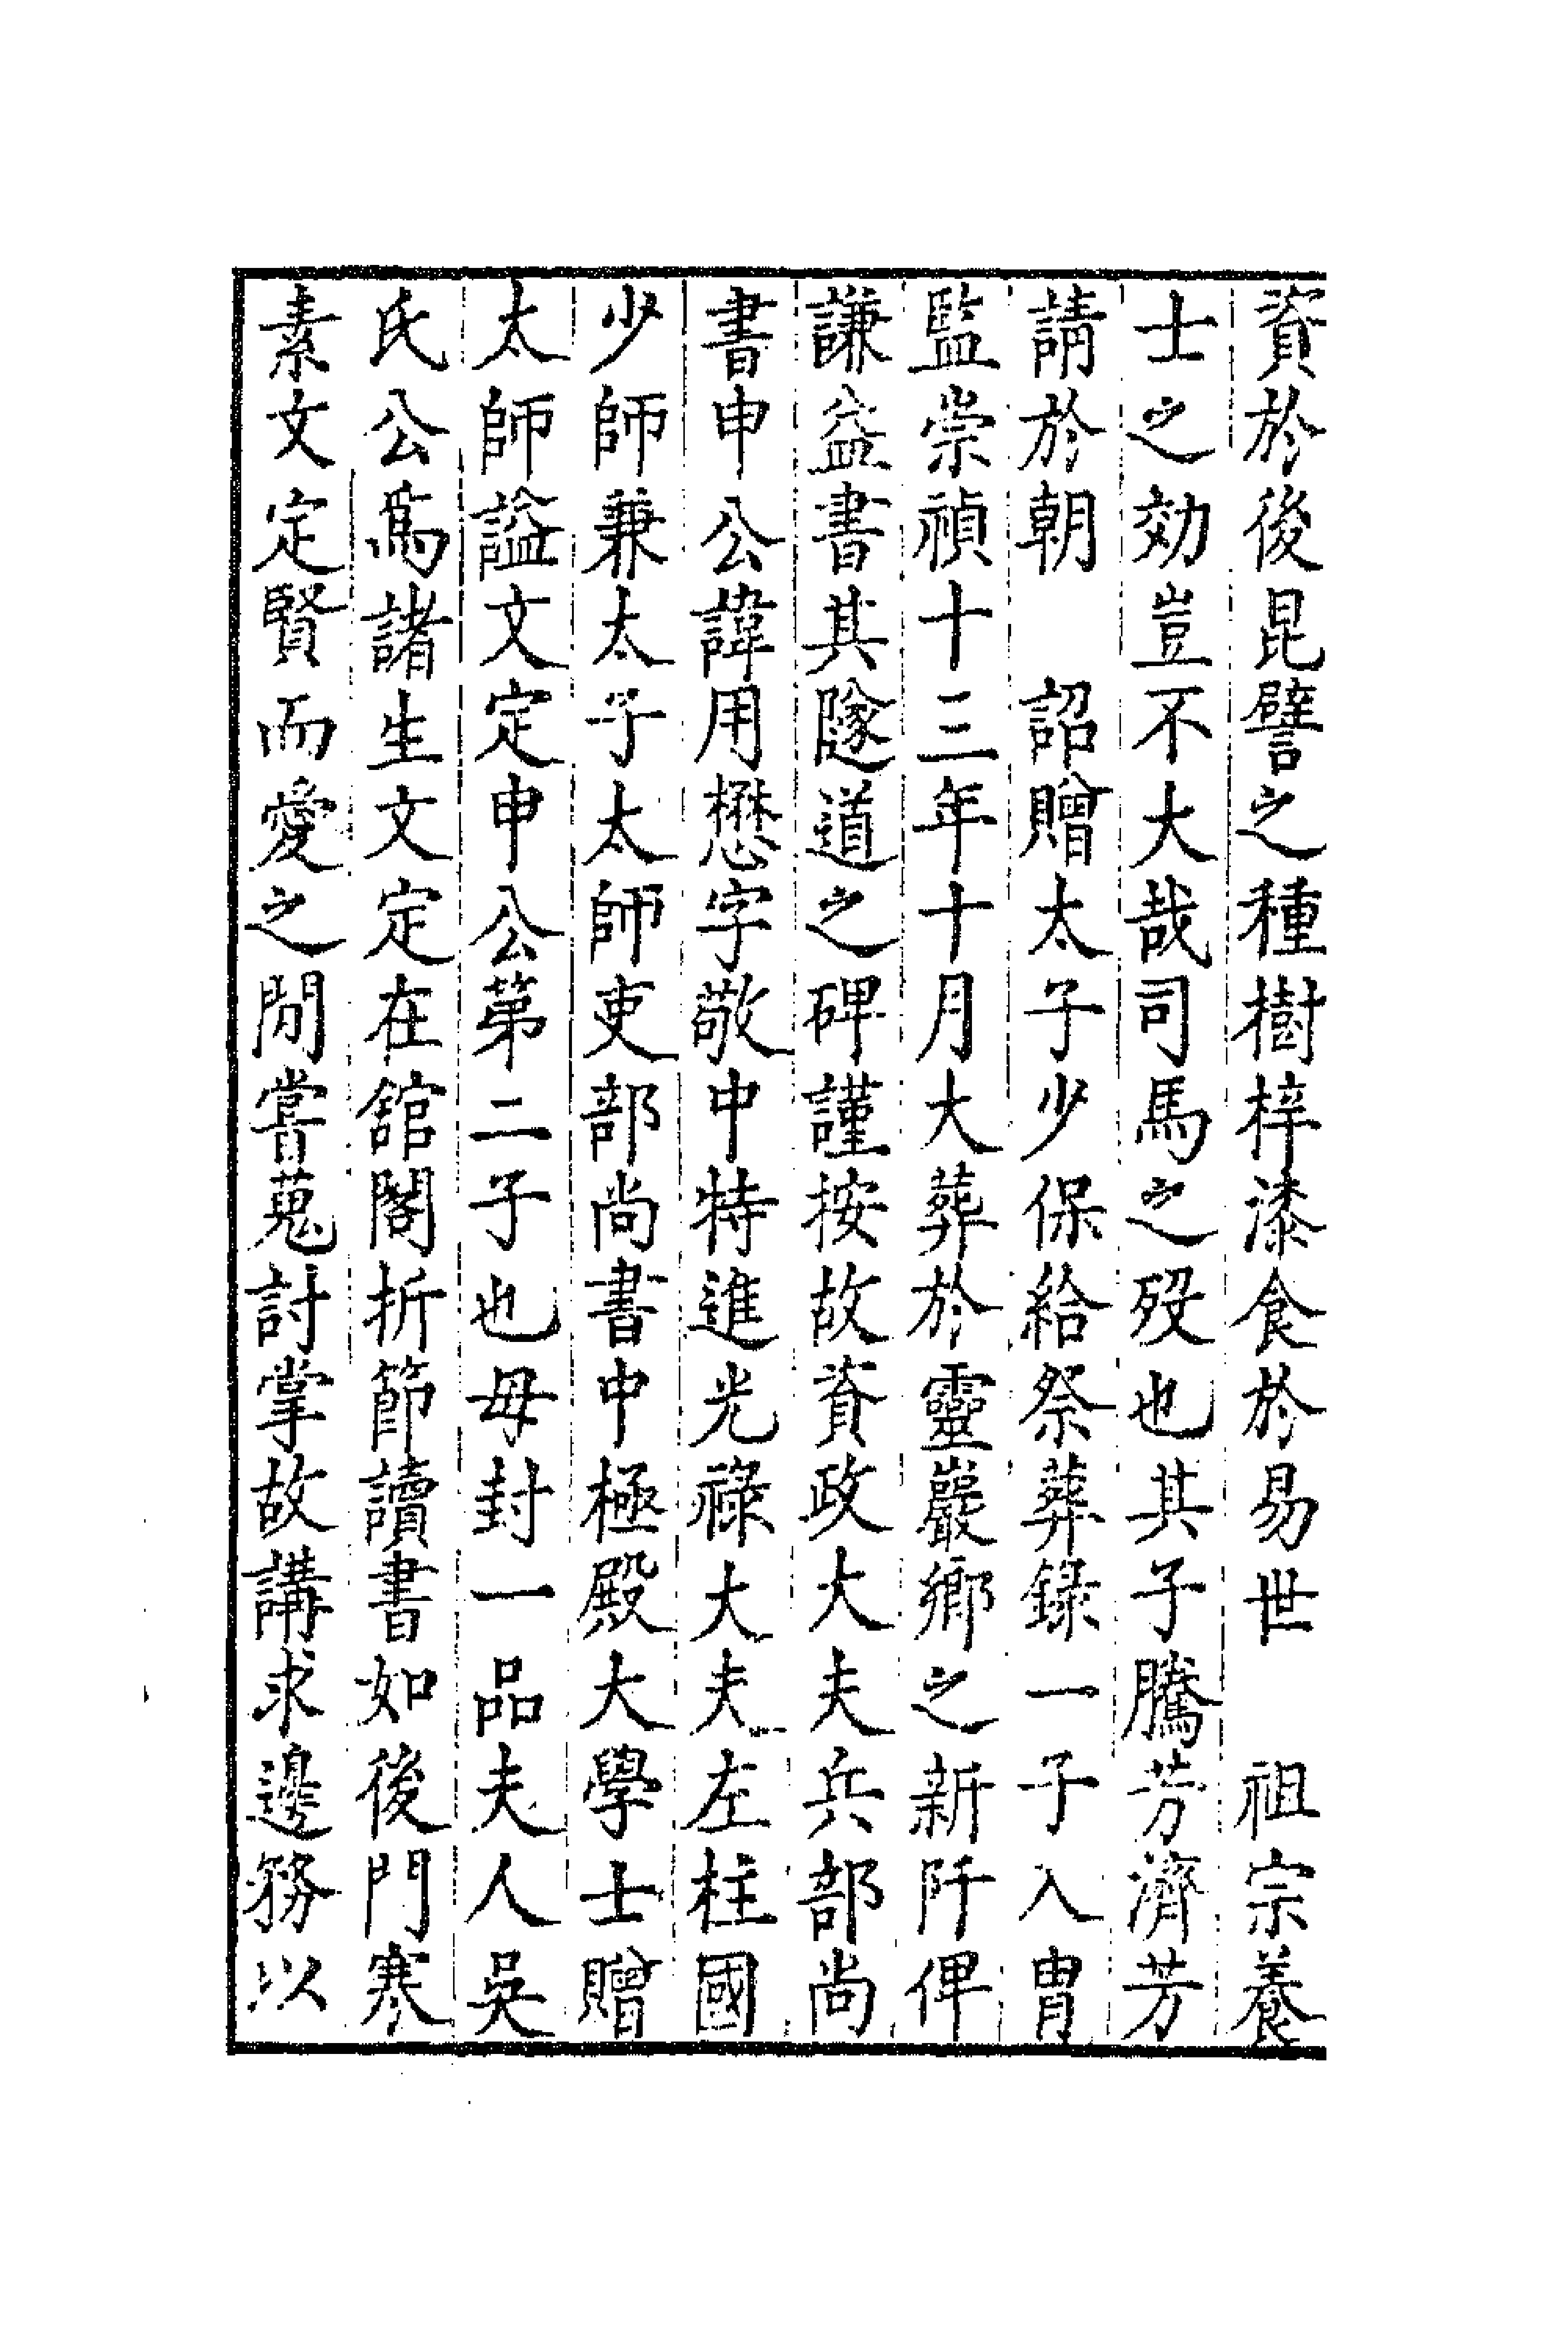 資於後昆譬之種樹梓漆食於易世　祖宗養
士之効豈不大哉司馬之歿也其子騰芳濟芳
請於朝　詔贈太子少保給祭葬錄一子入胄
監崇禎十三年十月大葬於靈巖鄉之新阡俾
謙益書其隧道之碑謹按故資政大夫兵部尚
書申公諱用懋字敬中特進光祿大夫左柱國
少師兼太子太師吏部尚書中極殿大學士贈
太師謚文定申公第二子也母封一品夫人吳
氏公為諸生文定在舘閣折節讀書如後門寒
素文定賢而愛之閒嘗蒐討掌故講求邊務以